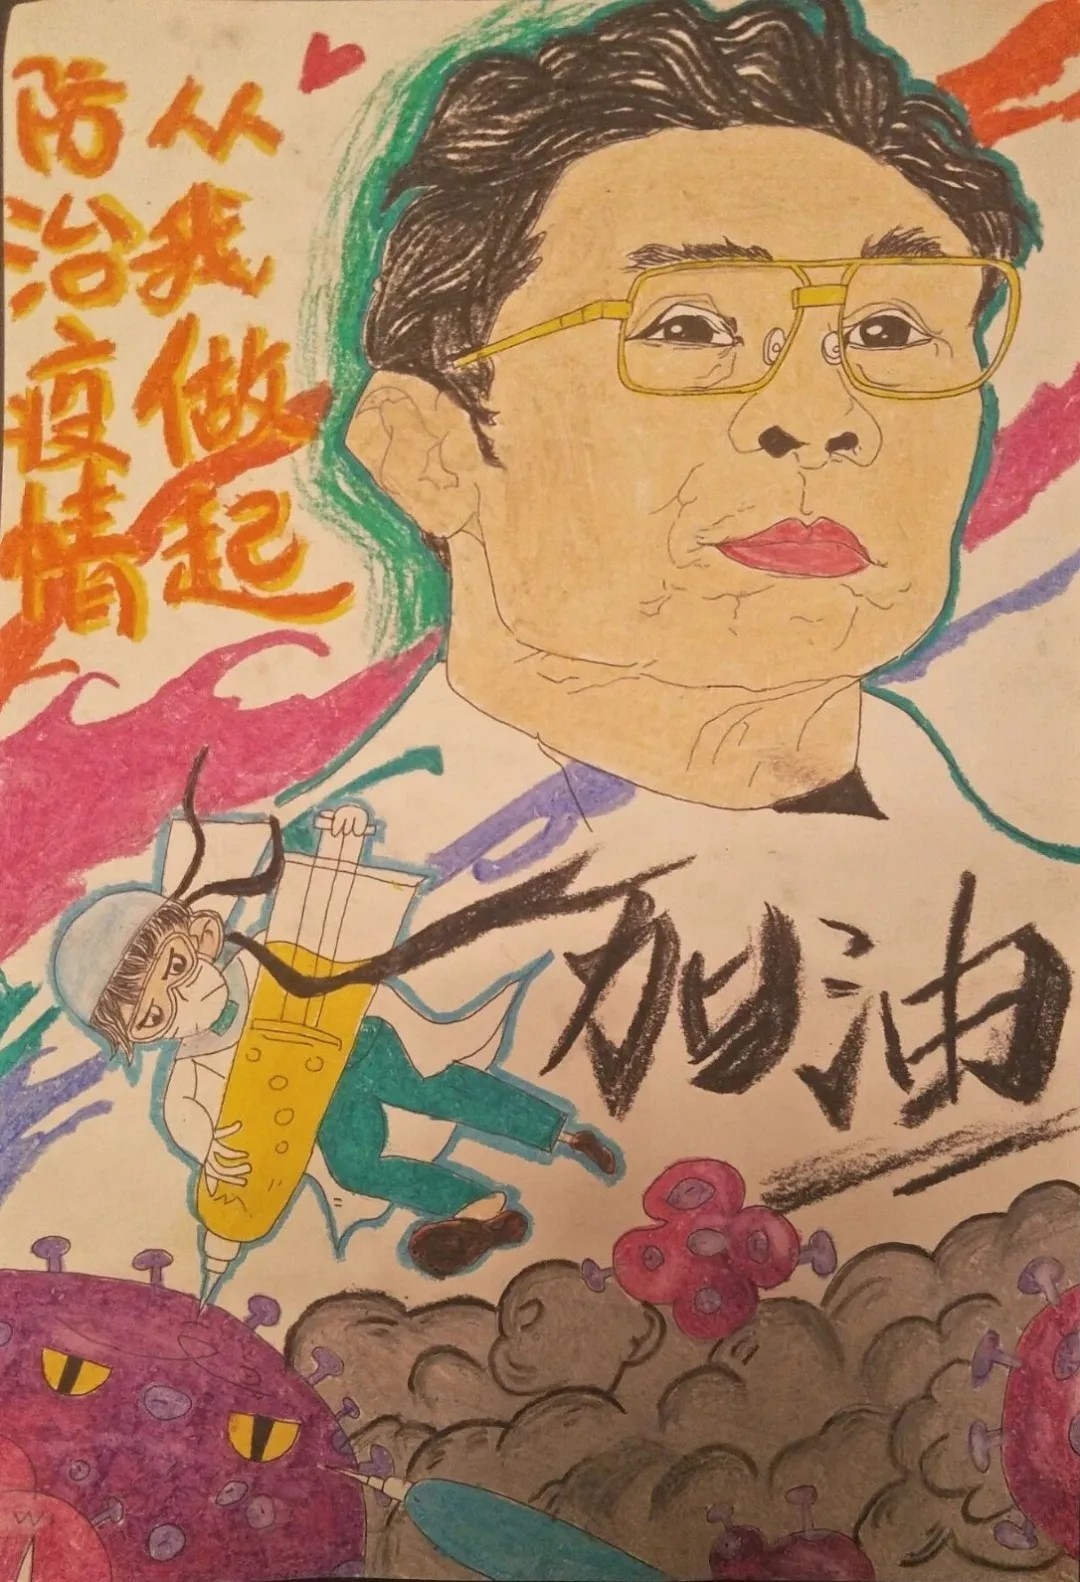 防治疫情
从我做起
加油